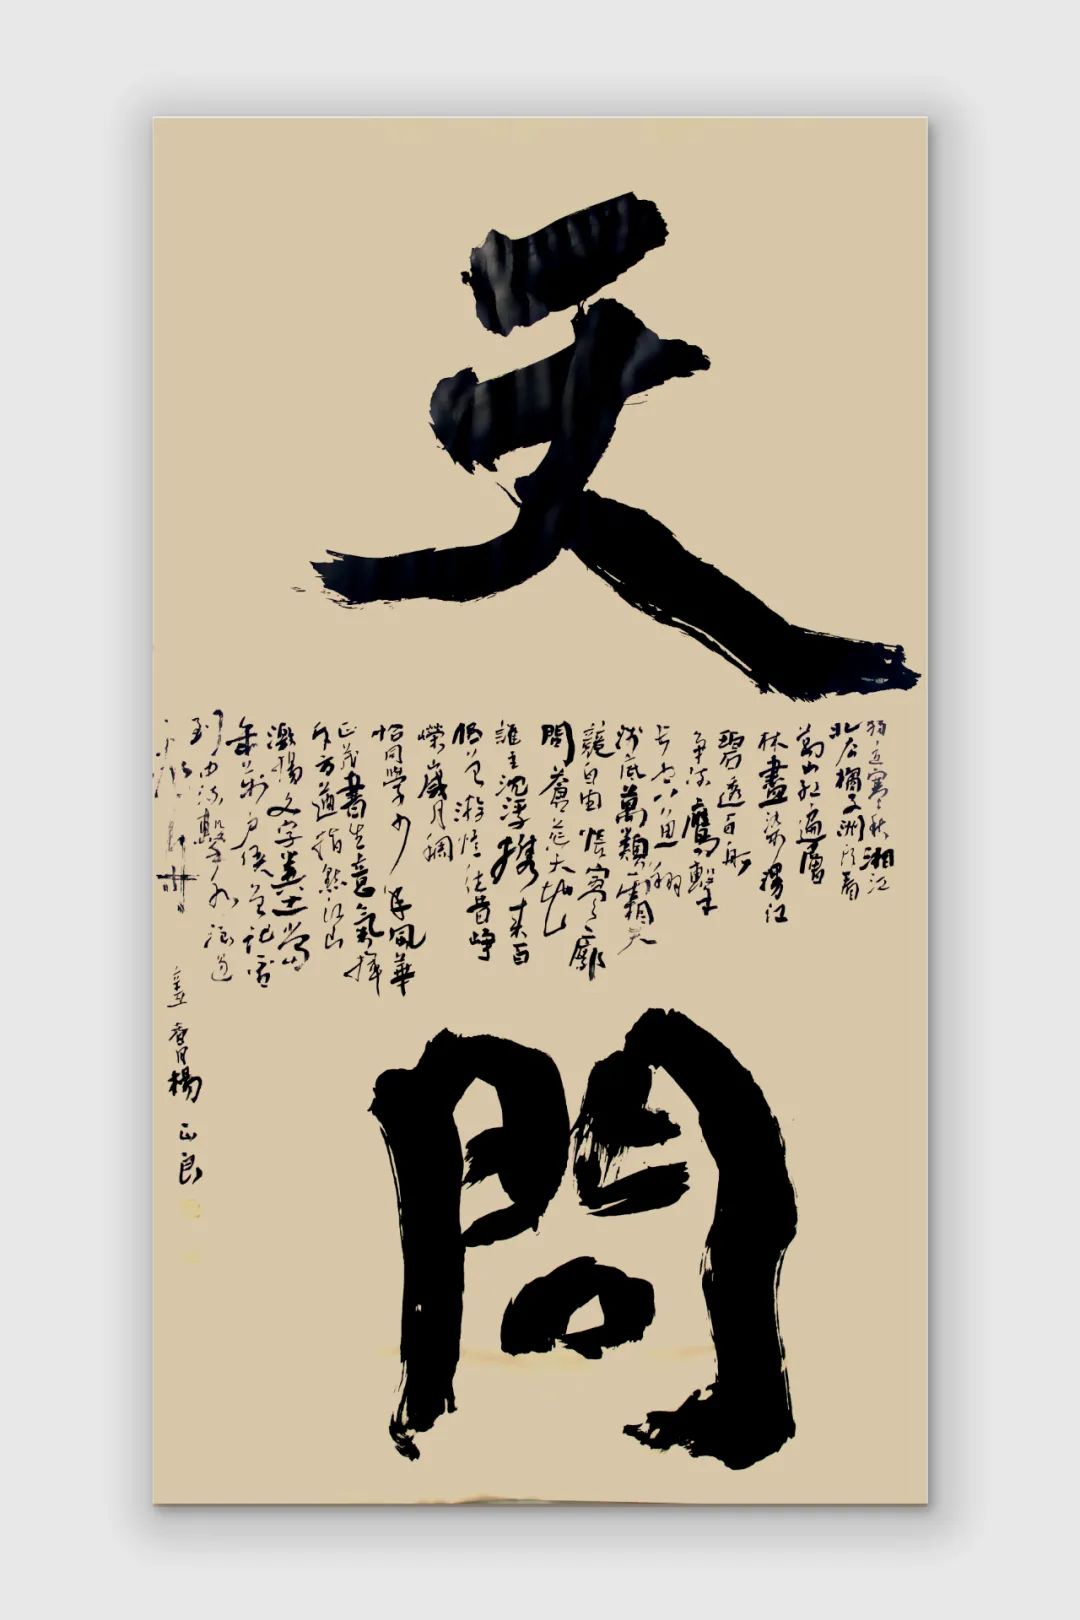 天問
獨立寒秋湘江
北去橘子洲頭看
萬山紅遍層
林盡染漫江
碧透百舸
爭流鷹擊
長空魚翔
淺底萬類霜天
競自由悵寥廓
問蒼茫大地
誰主沈浮攜來百
侶曾游憶往昔崢
嶸歲月稠
恰同學少年風華
正茂書生意氣揮
斥方遒指點江山
激揚文字糞土當
年萬戶侯曾記否
到中流擊水浪遏
楊正良